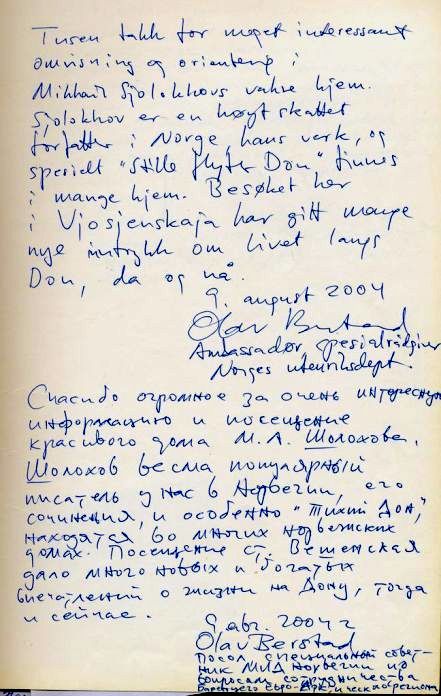 Tusen takk for meget interessant
omvisning og orientering i
Mikhail Sjolokhovs vakre hjem.
Sjolokhov er en høyt skattet
forfatter i Norge, hans verk, og
spesielt "Stille flyter Don" finnes
i mange hjem. Besøket her
i Vjosjenskaja har gitt mange
nye inntrykk om livet langs
Don, da og nå.
9. august 2004
Olav Berstad
Ambassadør, spesialrådgiver
Norges utenriksdept.
Спасибо огромное за очень интересную
информацию и посещение
красивого дома М.А. Шолохова.
Шолохов весма популярный
писатель у нас в Норвегии, его
сочинения, и особенно "Тихий Дон",
находятся во многих норвежских
домах. Посещение ст. Вешенская
дало много новых и богатых
впечатлений о жизни на Дону, тогда
и сейчас.
9 авг. 2004 г
Olav Berstad
Посол, специальный совет-
ник МИД Норвегии по
вопросам сотрудничества
Баренцево Евро-Арктическом регионе